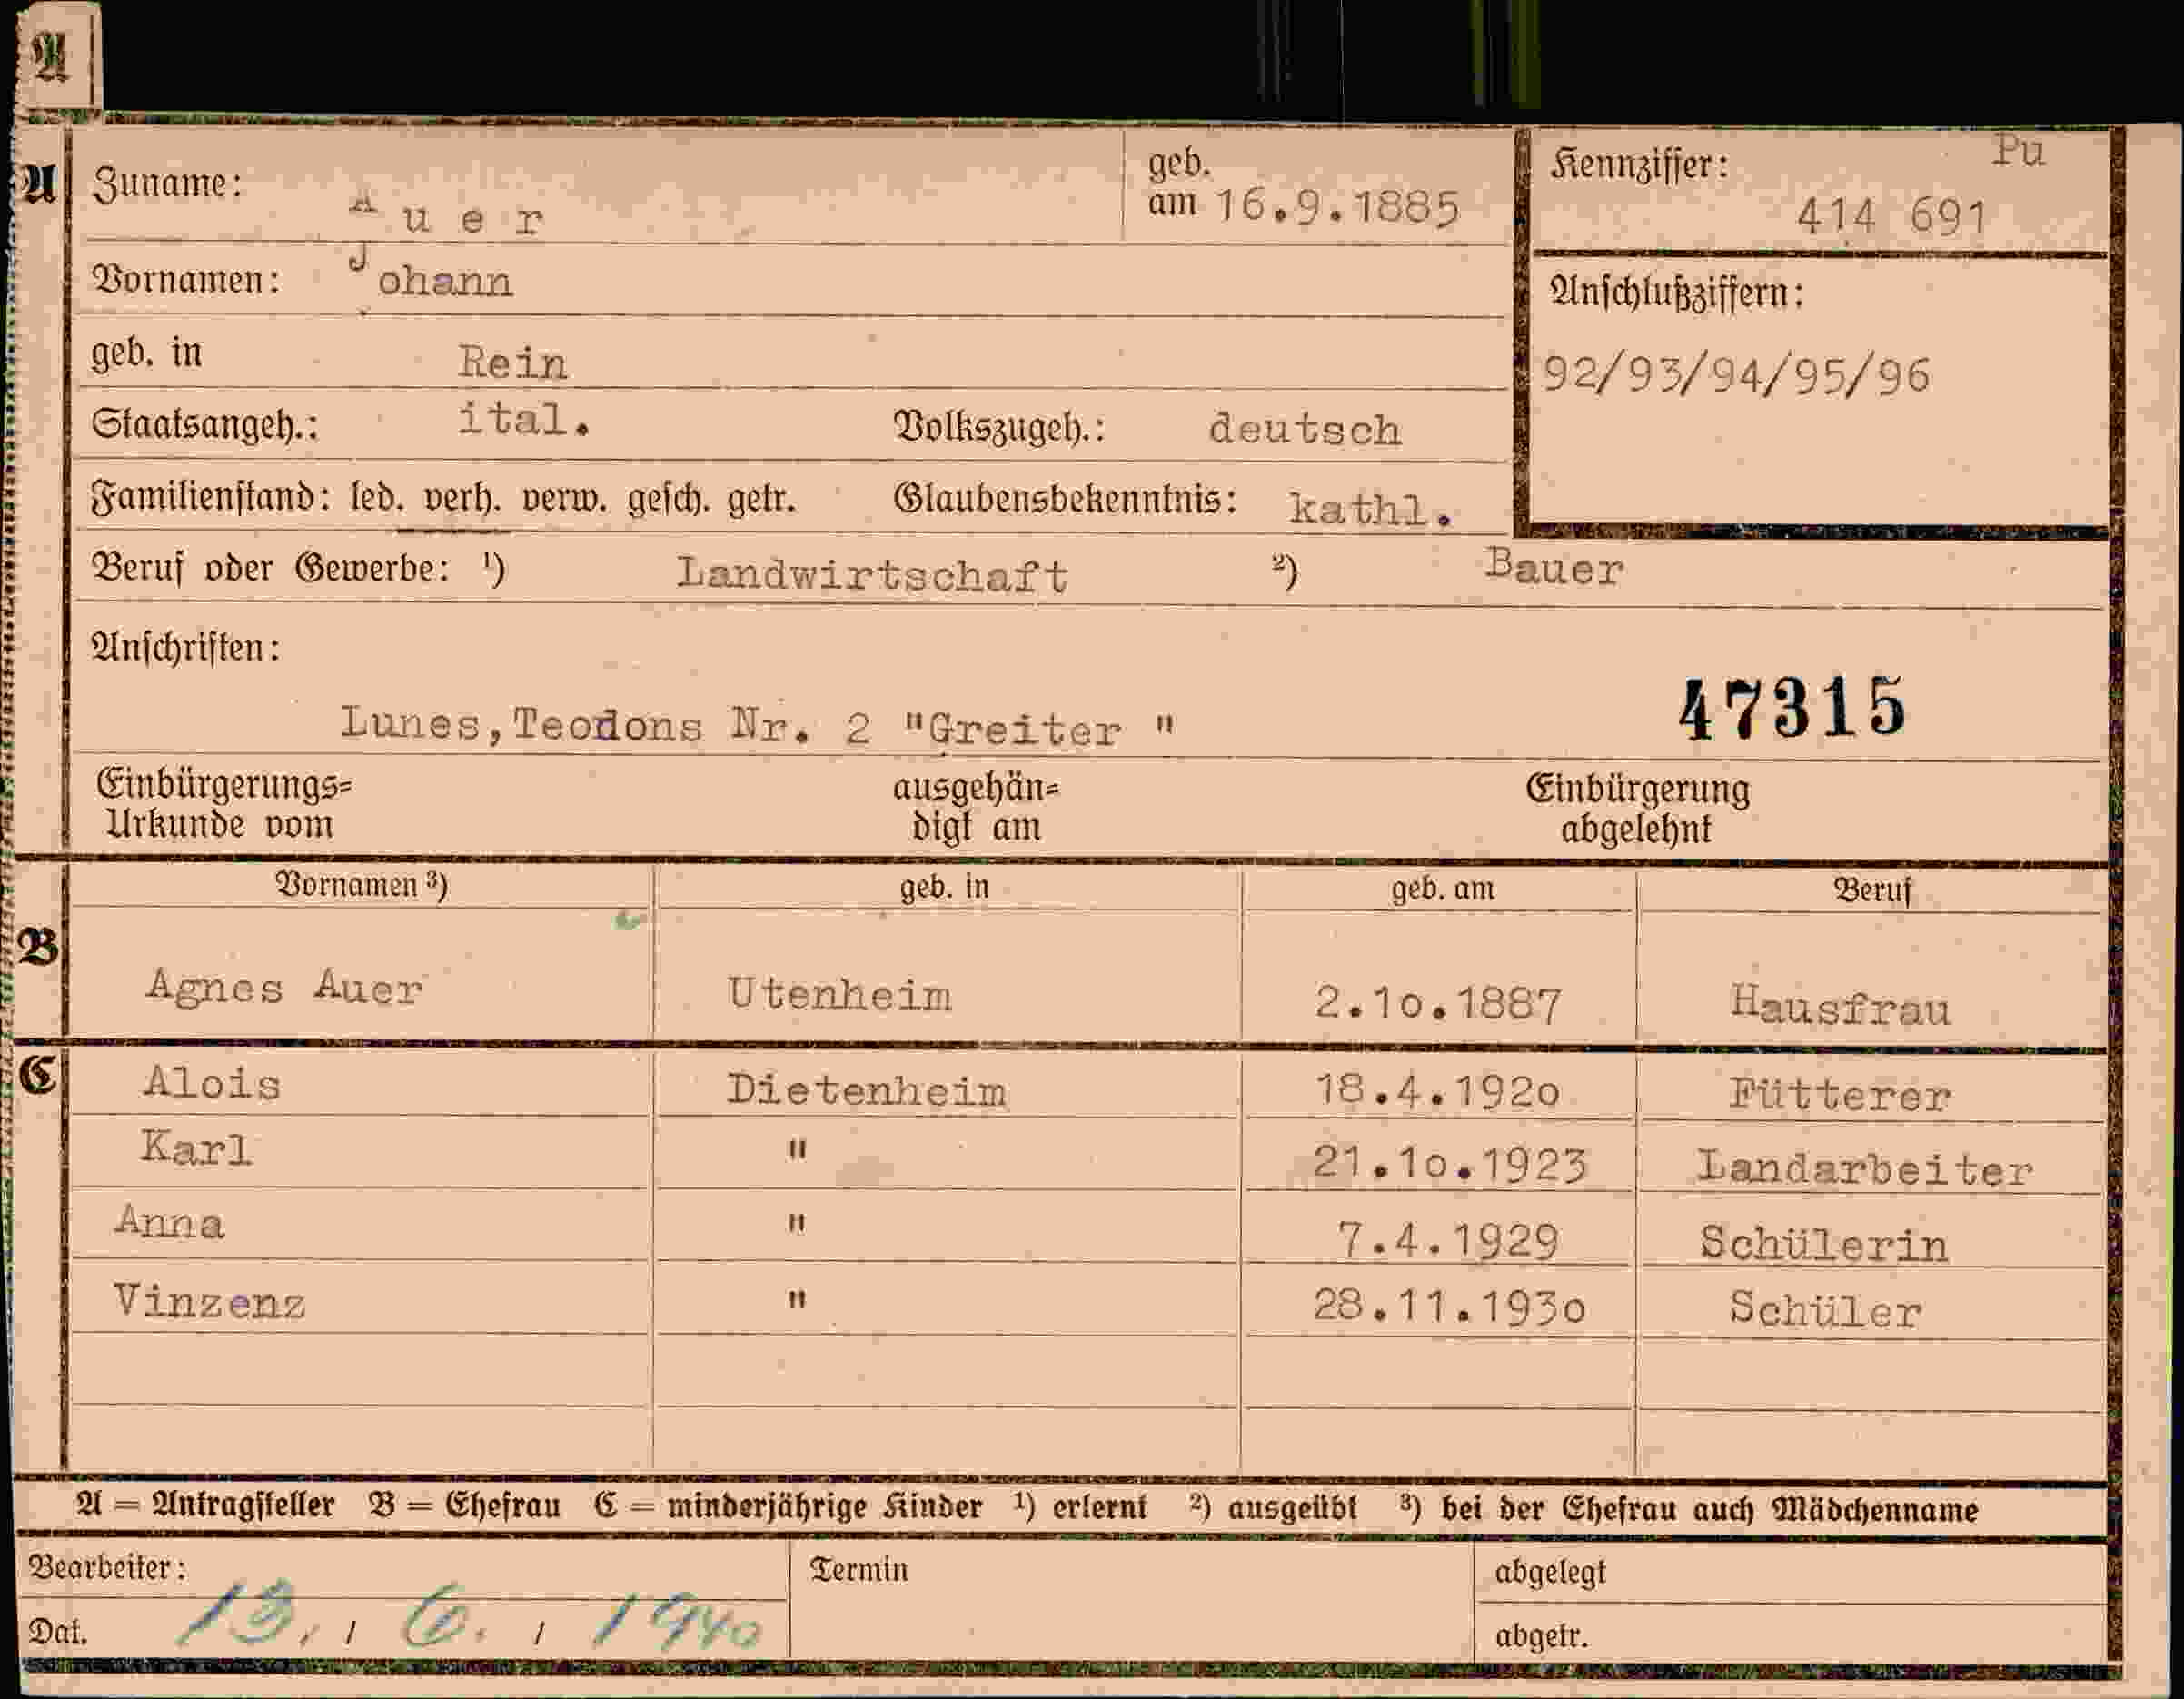 A
A
Zuname: Auer geb. am 16.9.1885
Kennziffer: Pu
414 691
Vornamen: Johann
Anschlußziffern:
92/93/94/95/96
geb. in Rein
Staatsangeh.: ital. Volkszugeh.: deutsch
Familienstand: led. verh. verw. gesch. getr. Glaubensbekenntnis: kathl.
Beruf oder Gewerbe: ¹) Landwirtschaft ²) Bauer
Anschriften:
47315
Lunes,Teodons Nr. 2 "Greiter "
Einbürgerungs= ausgehän= Einbürgerung
Urkunde vom digt am abgelehnt
Vornamen ³) geb. in geb. am Beruf
B
Agnes Auer Utenheim 2.10.1887 Hausfrau
C
Alois Dietenheim 18.4.1920 Fütterer
Karl " 21.10.1923 Landarbeiter
Anna " 7.4.1929 Schülerin
Vinzenz " 28.11.1930 Schüler
A = Antragsteller B = Ehefrau C = minderjährige Kinder ¹) erlernt ²) ausgeübt ³) bei der Ehefrau auch Mädchenname
Bearbeiter: Termin abgelegt
Dat. 13. / 6. / 1940 abgetr.